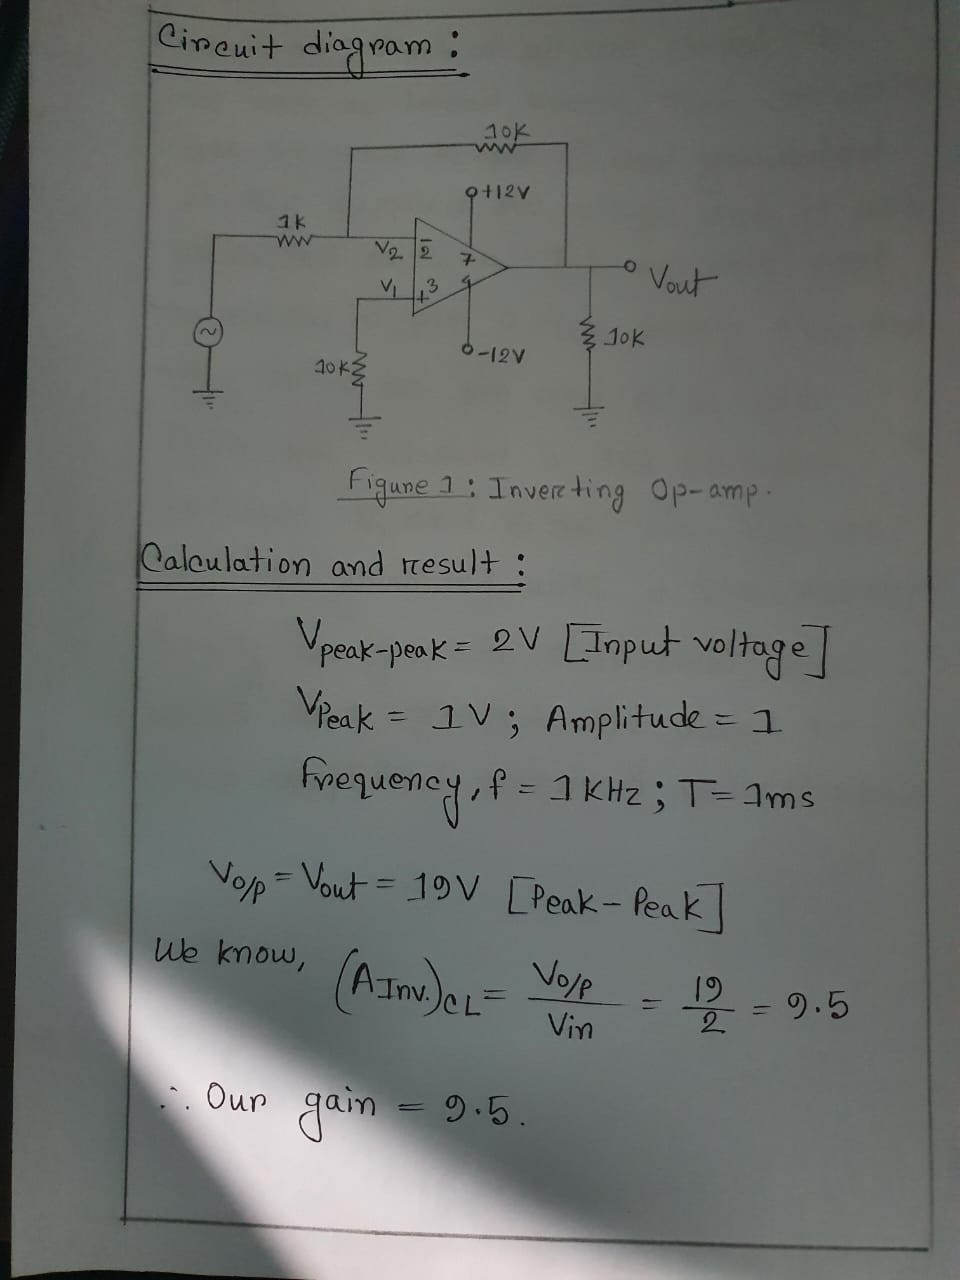 Circuit diagram :
10K
+12V
1K
V2 2 - 7
V1 3 + 4
Vout
10K
-12V
10K
Figure 1 : Inverting Op-amp.
Calculation and result :
Vpeak-peak = 2V [Input voltage]
VPeak = 1V ; Amplitude = 1
Frequency, f = 1 KHz ; T = 1ms
Vo/p = Vout = 19V [Peak-Peak]
We know, (AInv.)CL = Vo/p / Vin = 19/2 = 9.5
∴ Our gain = 9.5.